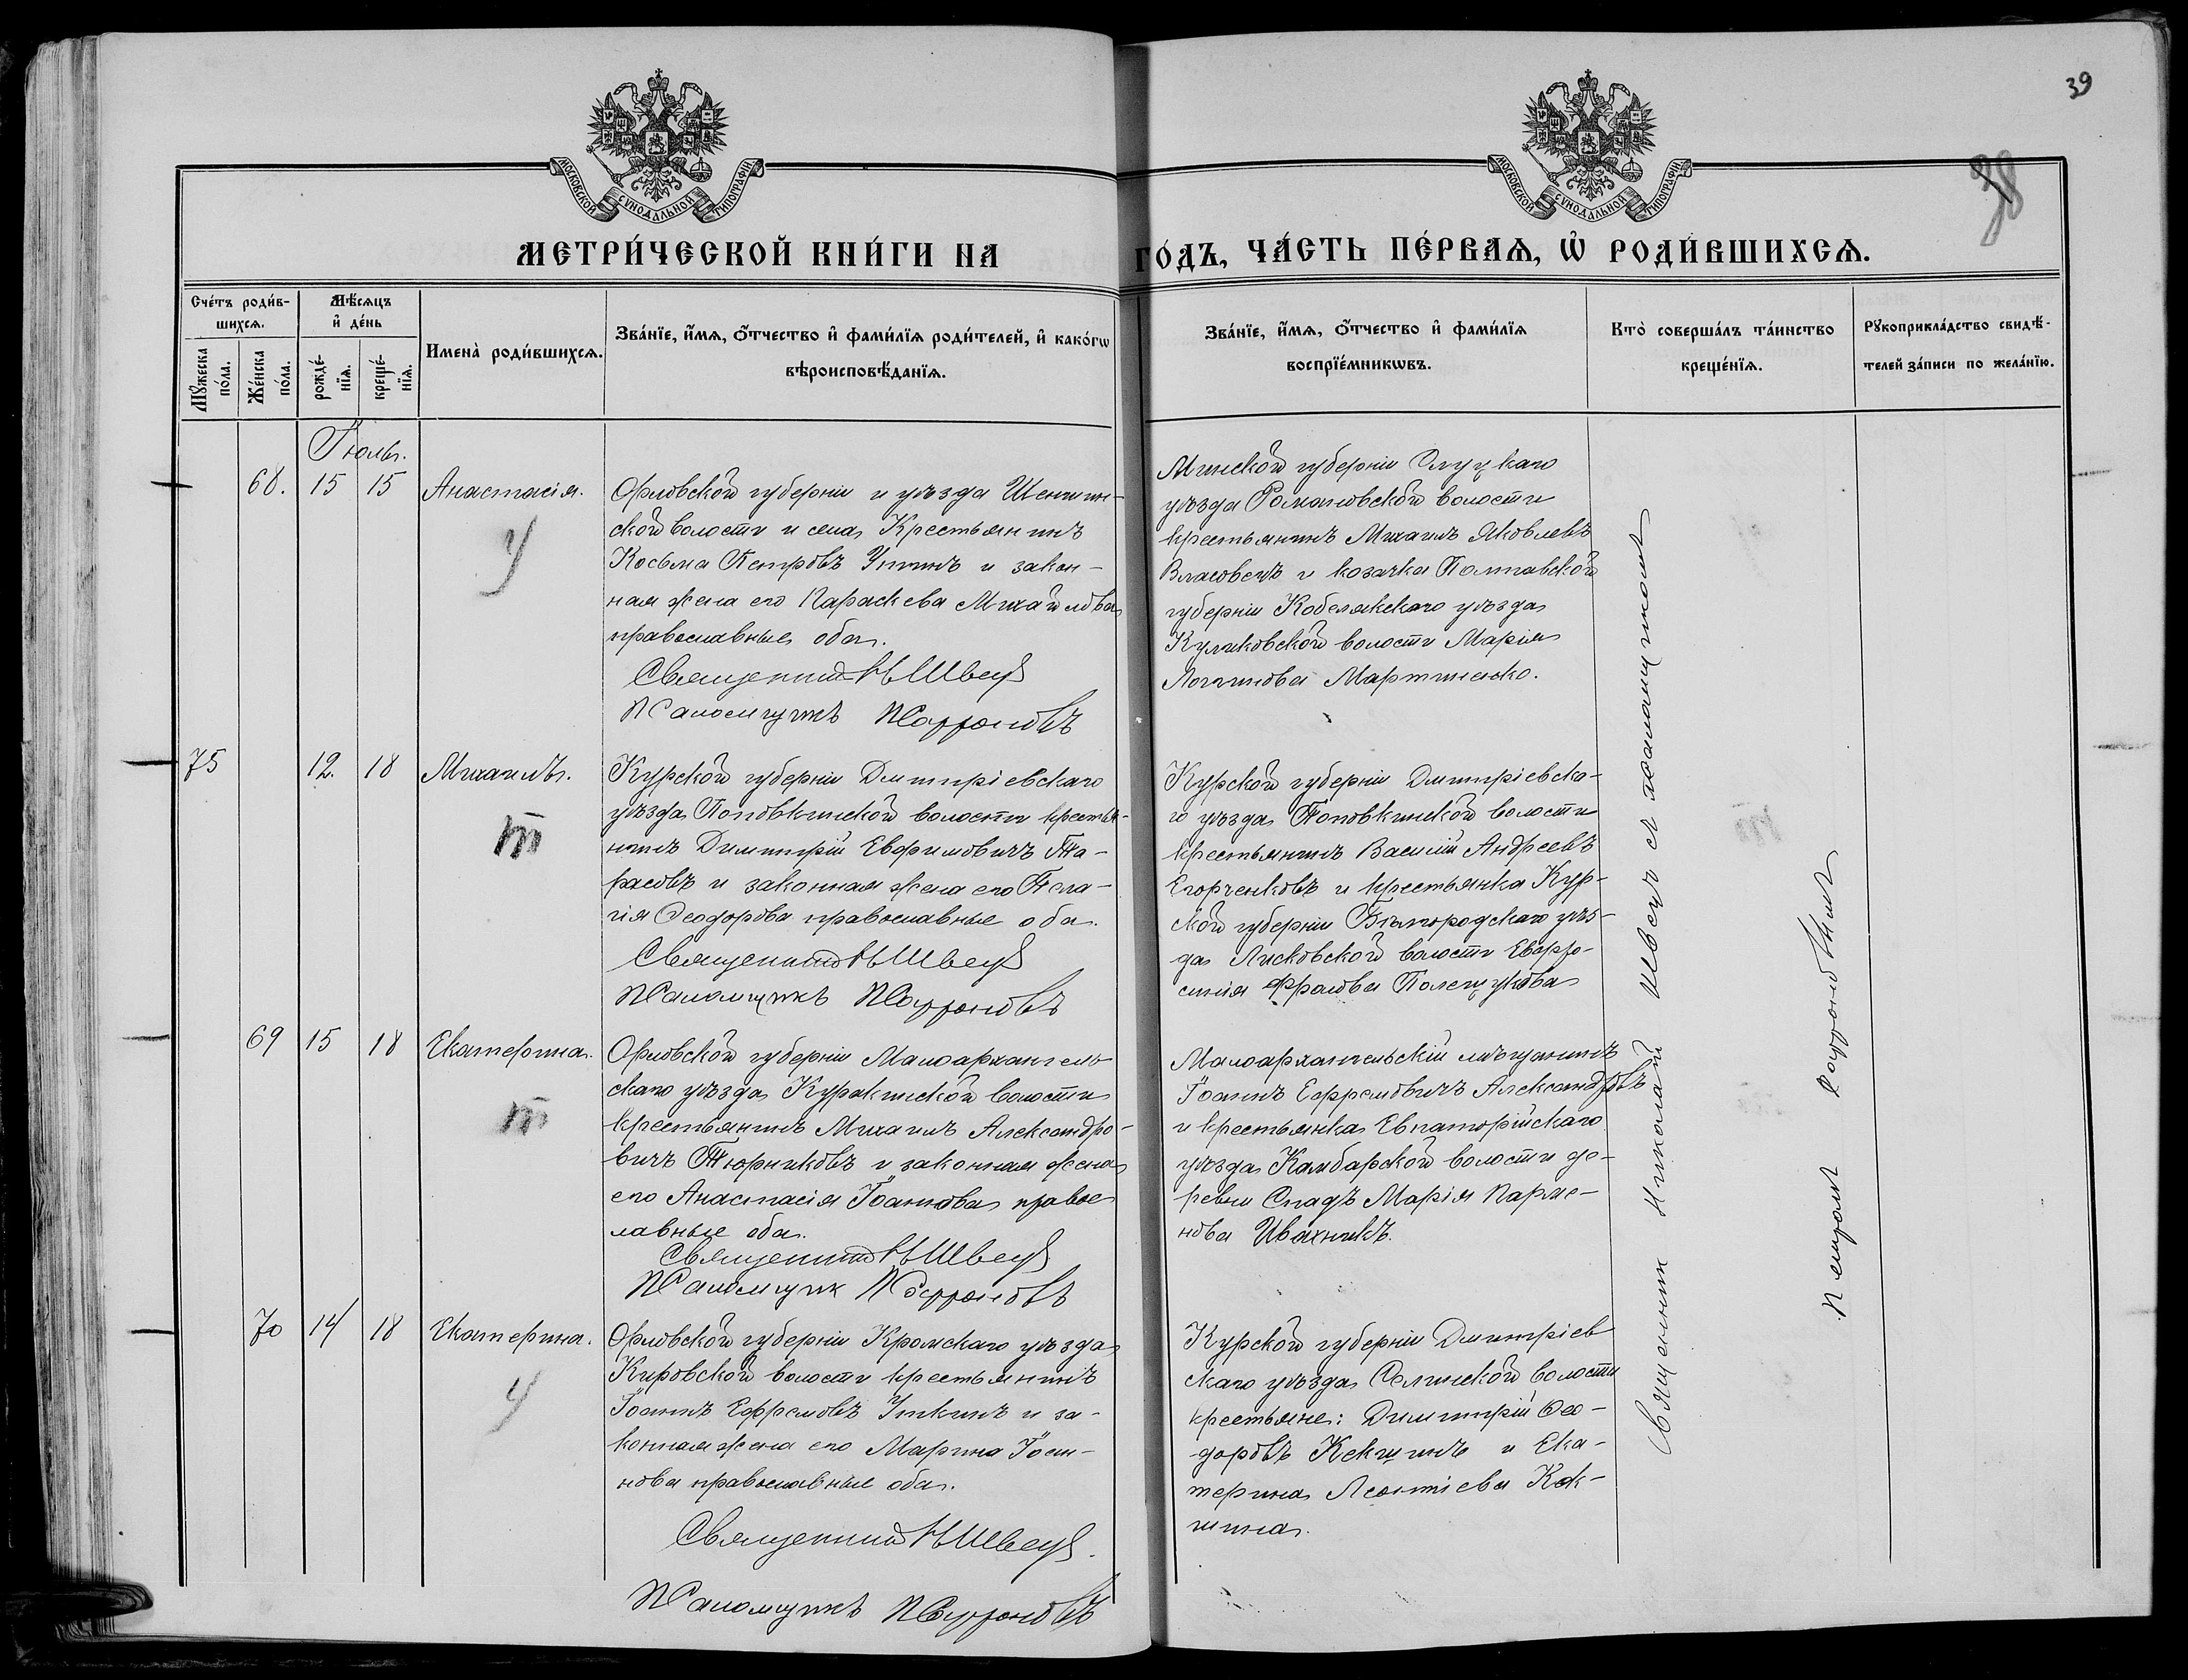 39
38
МОСКОВСКОЙ СѴНОДАЛЬНОЙ ТИПОГРАФІИ
МОСКОВСКОЙ СѴНОДАЛЬНОЙ ТИПОГРАФІИ
МЕТРИ́ЧЕСКОЙ КНИ́ГИ НА
ГО́ДЪ, ЧА́СТЬ ПЕ́РВАѦ, Ѡ҆ РОДИ́ВШИХСѦ.
Сче́тъ роди́в-
шихсѧ.
Мꙋжеска по́ла.
Же́нска по́ла.
Мѣ́сѧцъ
и҆ де́нь
рожде́-
нїѧ.
креще́-
нїѧ.
Имена̀ роди́вшихсѧ.
Зва́нїе, и҆́мѧ, ѻ҆́тчество и҆ фами́лїѧ роди́телей, и҆ како́гѡ
вѣроисповѣ́данїѧ.
Зва́нїе, и҆́мѧ, ѻ҆́тчество и҆ фами́лїѧ
воспрїе́мникѡвъ.
Кто̀ соверша́лъ та́инство
креще́нїѧ.
Рꙋкоприкла́дство свидѣ́-
телей за́писи по жела́нїю.
Іюль.
68. 15 15 Анастасія.
У
Орловской губерніи и уѣзда
ской волости и села Крестьянинъ
Косьма Петровъ Утинъ и закон-
ная жена его Параскева Михайлова
православные оба.
Священникъ Н Швецъ
Псаломщикъ
Минской губерніи Слуцкаго
уѣзда Романовской волости
крестьянинъ Михаилъ Яковлевъ
Власовецъ и козачка Полтавской
губерніи Кобелякскаго уѣзда
Куликовской волости Марія
Логгинова Мартиненко.
75 12. 18 Михаилъ.
Т
Курской губерніи Дмитріевскаго
уѣзда Поповкинской волости крестья-
нинъ Димитрій Евфимовичъ Та-
расовъ и законная жена его Пела-
гія Ѳеодорова православные оба.
Священникъ Н Швецъ
Псаломщикъ
Курской губерніи Дмитріевска-
го уѣзда Поповкинской волости
крестьянинъ Василій Андреевъ
Егорченковъ и крестьянка Кур-
ской губерніи Бѣлгородскаго уѣз-
да Лисковской волости Евфро-
синія Фролова Полещукова
69 15 18 Екатерина.
Т
Орловской губерніи Малоархангель-
скаго уѣзда Куракинской волости
крестьянинъ Михаилъ Александро-
вичъ Тюрниковъ и законная жена
его Анастасія Іоаннова право
славные оба.
Священникъ Н Швецъ
Псаломщик
Малоархангельскій мѣщанинъ
Іоаннъ Ефремовичъ Александровъ
и крестьянка Евпаторійскаго
уѣзда Камбарской волости де-
ревни Спадъ Марія Парме-
нова Ивахникъ.
70 14 18 Екатерина.
У
Орловской губерніи Кромскаго уѣзда
Кировской волости крестьянинъ
Іоаннъ Ефремовъ Уткинъ и за-
конная жена его Марина Іоан-
нова православные оба.
Священникъ Н Швецъ.
Псаломщикъ
Курской губерніи Дмитріев
скаго уѣзда Селинской волости
крестьяне: Димитрій Ѳео-
доровъ Кекшинъ и Ека-
терина Леонтіева Кек-
шина.
Священник Николай Швец с псаломщиком
Петром